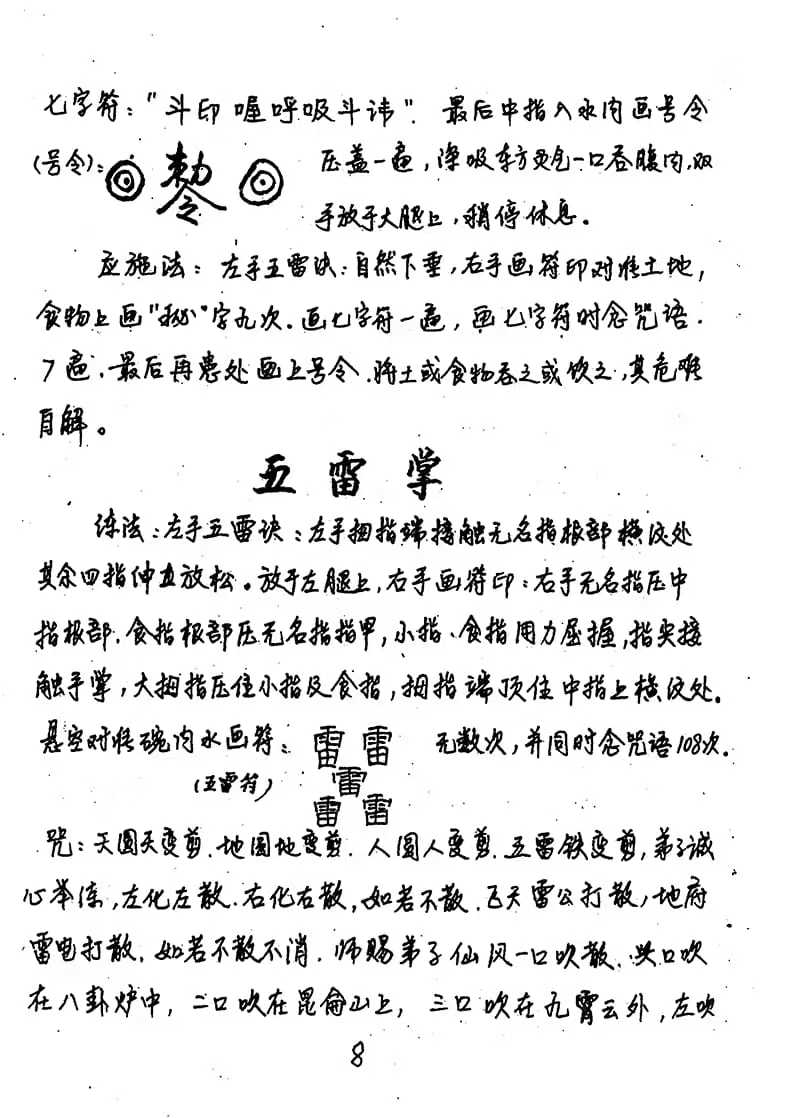 七字符："斗印喔呼吸斗讳"．最后中指入水内画号令
(号令)：敕令 压盖一遍，深吸东方炁一口吞腹内，双
手放于大腿上，稍停休息。
应施法：左手五雷诀：自然下垂，右手画符印对准土地，
食物上画""字九次．画七字符一遍，画七字符时念咒语．
7遍．最后再患处画上号令．将土或食物吞之或饮之，其危难
自解。
五雷掌
练法：左手五雷诀：左手拇指端接触无名指根部横纹处
其余四指伸直放松。放于左腿上，右手画符印：右手无名指压中
指根部．食指根部压无名指指甲，小指、食指用力屈握，指尖接
触手掌，大拇指压住小指及食指，拇指端顶住中指上横纹处。
悬空对准碗内水画符：雷 雷 无数次，并同时念咒语108次．
(五雷符) 雷
雷 雷
咒：天圆天变剪．地圆地变剪．人圆人变剪．五雷铁变剪，弟子诚
心奉练，左化左散．右化右散，如若不散．飞天雷公打散，地府
雷电打散．如若不散不消．师赐弟子仙风一口吹散．口吹
在八卦炉中，二口吹在昆侖山上，三口吹在九霄云外，左吹
8